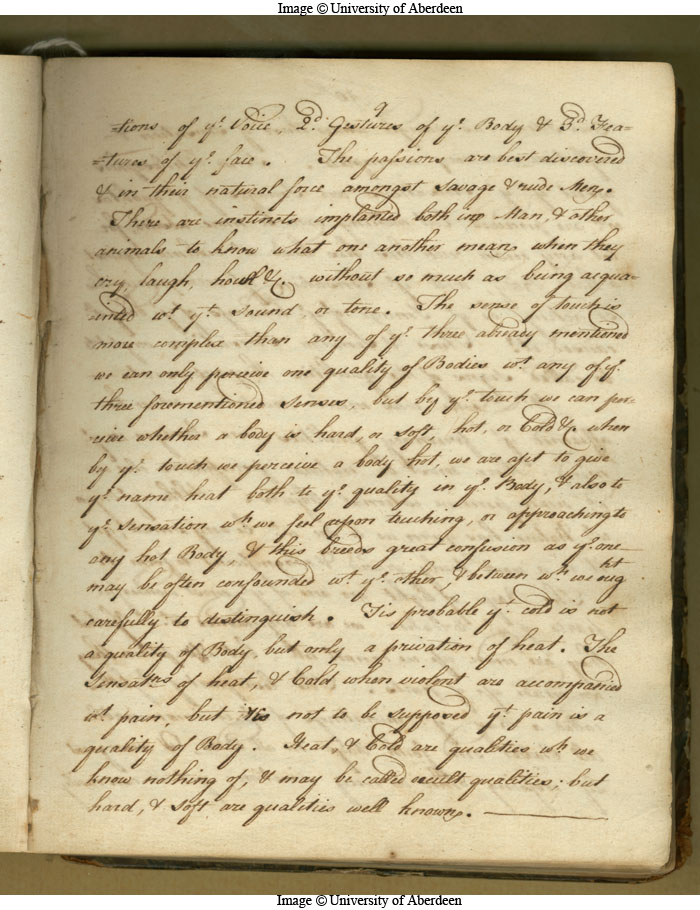 Image © University of Aberdeen
-tions of yͤ Voice, 2d. Gestures of yͤ Body & 3d. Fea=
=tures of yͤ face. The passions are best discovered
& in their natural force amongst savage & rude Men.
There are instincts implanted both in Man, & other
animals to know what one another mean, when they
cry, laugh, howll &c. without so much as being acqua=
inted wͭ yͭ sound, or tone. The sense of touch is
more complex than any of yͤ three already mentioned
we can only perceive one quality of Bodies wͭ any of yͤ
three forementioned senses, but by yͤ touch we can per
ceive whether a body is hard, or soft, hot, or Cold &c when
by yͤ touch we perceive a body hot, we are apt to give
yͤ name heat both to yͤ quality in yͤ Body, & also to
yͤ sensation wͪ we feel upon touching, or approaching to
any hot Body, & this breeds great confusion as yͤ one
may be often confounded wͭ yͤ other, & between wͪ we ought
carefully to distinguish. Tis probable yͭ cold is not
a quality of Body, but only a privation of heat. The
Sensatns of heat, & Cold when violent are accompanied
wͭ pain, but tis not to be supposed yͭ pain is a
quality of Body. Heat, & Cold are qualities wͪ we
know nothing of, & may be called occult qualities; but
hard, & soft are qualities well known.
Image © University of Aberdeen